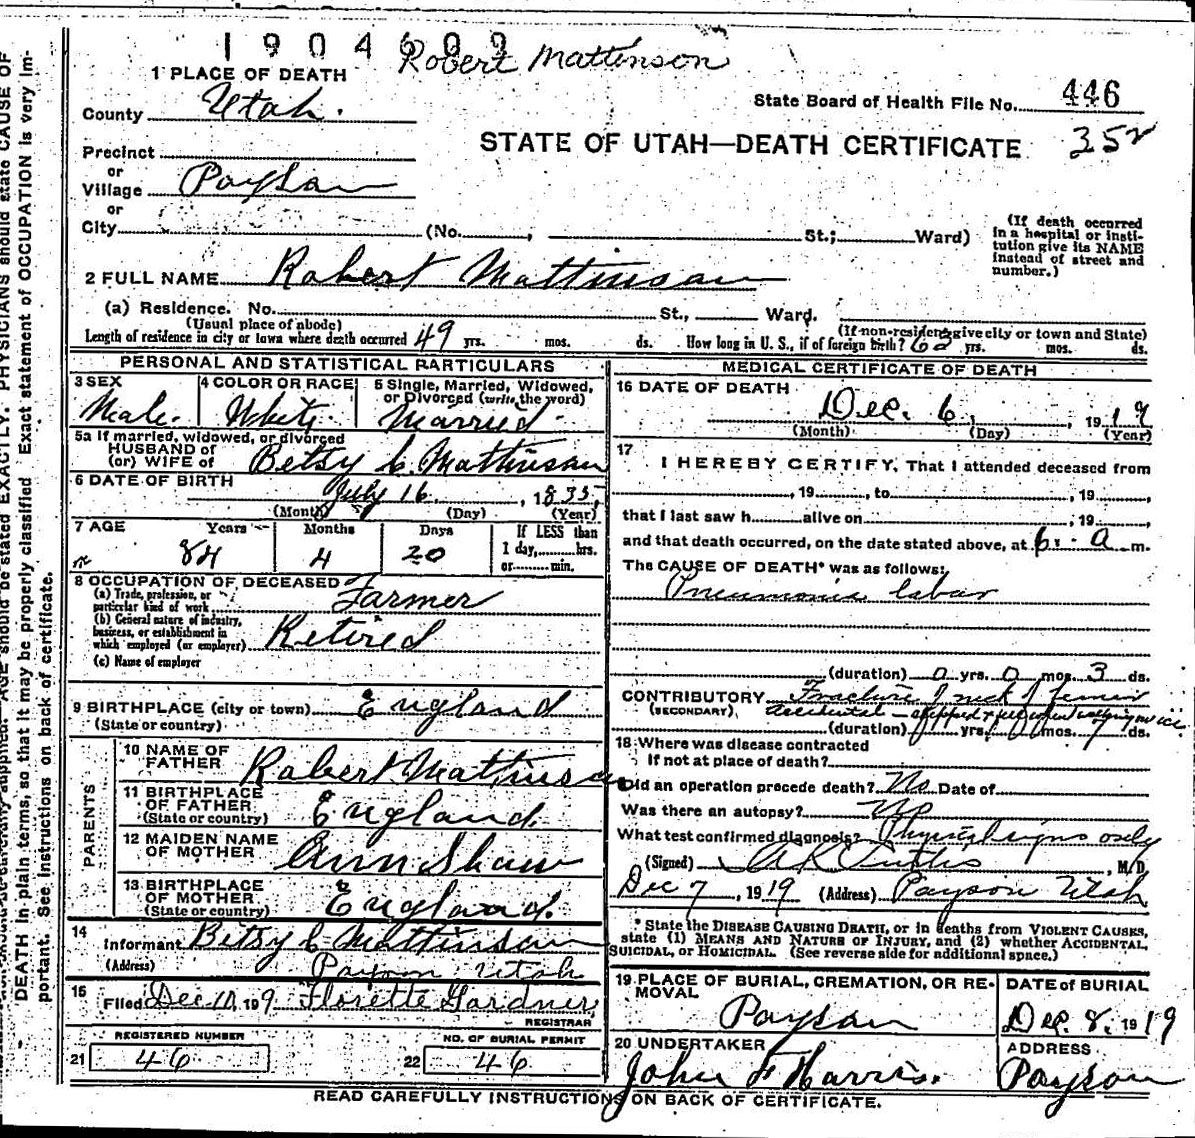 1904609
Robert Mattinson
1 PLACE OF DEATH
County Utah.
State Board of Health File No. 446
STATE OF UTAH—DEATH CERTIFICATE 352
Precinct
or
Village Payson
or
City (No. , St.; Ward)
(If death occurred in a hospital or institution give its NAME instead of street and number.)
2 FULL NAME Robert Mattinson
(a) Residence. No. St., Ward.
(Usual place of abode) (If non-resident give city or town and State)
Length of residence in city or town where death occurred 49 yrs. mos. ds. How long in U. S., if of foreign birth? 63 yrs. mos. ds.
PERSONAL AND STATISTICAL PARTICULARS
3 SEX Male.
4 COLOR OR RACE White
5 Single, Married, Widowed, or Divorced (write the word) Married
5a If married, widowed, or divorced
HUSBAND of
(or) WIFE of Betsy C. Mattinson
6 DATE OF BIRTH July 16, 1835
(Month) (Day) (Year)
7 AGE Years 84 Months 4 Days 20
If LESS than 1 day, hrs. or min.
8 OCCUPATION OF DECEASED
(a) Trade, profession, or particular kind of work Farmer
(b) General nature of industry, business, or establishment in which employed (or employer) Retired
(c) Name of employer
9 BIRTHPLACE (city or town) England
(State or country)
PARENTS
10 NAME OF FATHER Robert Mattinson
11 BIRTHPLACE OF FATHER England.
(State or country)
12 MAIDEN NAME OF MOTHER Ann Shaw
13 BIRTHPLACE OF MOTHER England.
(State or country)
14 Informant Betsy C Mattinson
(Address) Payson Utah
15 Filed Dec 10, 19 9 Florette Gardner,
REGISTRAR
REGISTERED NUMBER
21 46
NO. OF BURIAL PERMIT
22 46
MEDICAL CERTIFICATE OF DEATH
16 DATE OF DEATH
Dec. 6, 1919
(Month) (Day) (Year)
17 I HEREBY CERTIFY, That I attended deceased from
, 19 , to , 19 ,
that I last saw h alive on , 19 ,
and that death occurred, on the date stated above, at 6:- a m.
The CAUSE OF DEATH* was as follows:
Pneumonia lobar
(duration) 0 yrs. 0 mos. 3 ds.
CONTRIBUTORY Fracture of neck of femur
(SECONDARY) accidental - slipped & fell when walking on ice.
(duration) 0 yrs. 0 mos. 7 ds.
18 Where was disease contracted
If not at place of death?
Did an operation precede death? No Date of
Was there an autopsy? No
What test confirmed diagnosis? Physical signs only
(Signed) , M/D.
Dec 7, 1919 (Address) Payson Utah
* State the DISEASE CAUSING DEATH, or in deaths from VIOLENT CAUSES, state (1) MEANS AND NATURE OF INJURY, and (2) whether ACCIDENTAL, SUICIDAL, or HOMICIDAL. (See reverse side for additional space.)
19 PLACE OF BURIAL, CREMATION, OR REMOVAL
Payson
DATE of BURIAL
Dec. 8, 1919
20 UNDERTAKER
John F Harris.
ADDRESS
Payson
READ CAREFULLY INSTRUCTIONS ON BACK OF CERTIFICATE.
AGE should be stated EXACTLY. PHYSICIANS should state CAUSE OF
DEATH in plain terms, so that it may be properly classified. Exact statement of OCCUPATION is very im-
portant. See instructions on back of certificate.